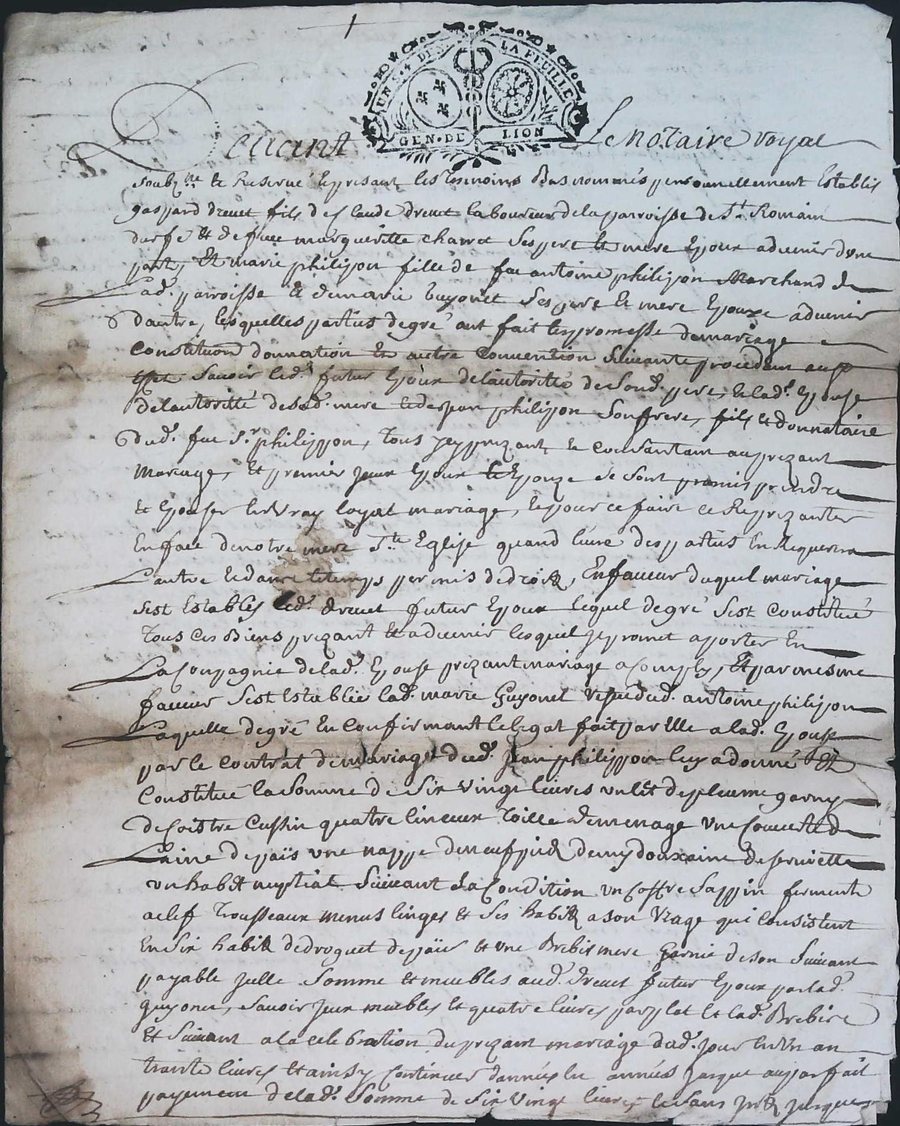 UN S. 4 DEN. LA FEUILLE
GEN. DE LION
Devant Le Notaire royal
soubz.ne le Reservé Et presant les tesmoins Bas nommés personnellement Establis
gaspard drevet fils de claude drevet laboureur de la parroisse de St. Romain
durfé Et de feue margueritte charret ses pere Et mere Epoux advenir dune
part, Et marie philippon fille de feu antoine philippon Marchand de
Lad. parroisse Et de marie Guyonet ses pere Et mere Epouze advenir
dautre, lesquelles parties de gré ont fait les promesse de mariage
constitution donnation Et autre convention suivante procedant aux
effet savoir led. futur Epoux de lautorité de sond. pere, Et lad. Epouse
de lautorité de sad. mere Et de jean philippon son frere, fils Et donnataire
dud. feu Sr. philippon, tous jcy prezant Et consantant au prezant
mariage, Et premier jceux Epoux Et Epouze se sont promis prendre
Et Epouser En vray loyal mariage, Et pour ce faire ce Reprezanter
En face de notre mere Ste Eglise quand lune des parties En Requerra
Lautre Et dans le temps permis de droit, En faveur duquel mariage
sest Establis led. drevet futur Epoux lequel de gré sest constitué
tous ces Biens prezant Et advenir lesquel jl promet aporter En
La Compagnie de lad. Epouse prezant mariage acomply, Et par mesme
faveur sest Establie lad. marie Guyonet veuve dud. antoine philippon
Laquelle de gré En confirmant le legat fait par Elle a lad. Epouse
par le contrat de mariage dud. jean philippon luy a donné Et
Constitué la somme de six vingt livres un lit de plume garny
de coistre cussin quatre linceux toille de menage une couverte de
Laine de païs une nappe de neuf pied demy douzaine de serviette
un habit nuptial suivant sa Condition un coffre sappin fermant
a clef trousseaux menus linges Et ses habit a son uzage qui consistent
En six habit de droguet de païs Et une Brebis mere garnie de son suivant
payable jcelle somme Et meubles aud. Drevet futur Epoux par lad.
guyonet, savoir jceux meubles Et quatre livres Et lad. Brebis
Et suivant a la celebration du prezant mariage dud. jour En un an
trante livres Et ainsy continuer dannées En années jusque au parfait
payement de lad. somme de six vingt livres Et sans jusques